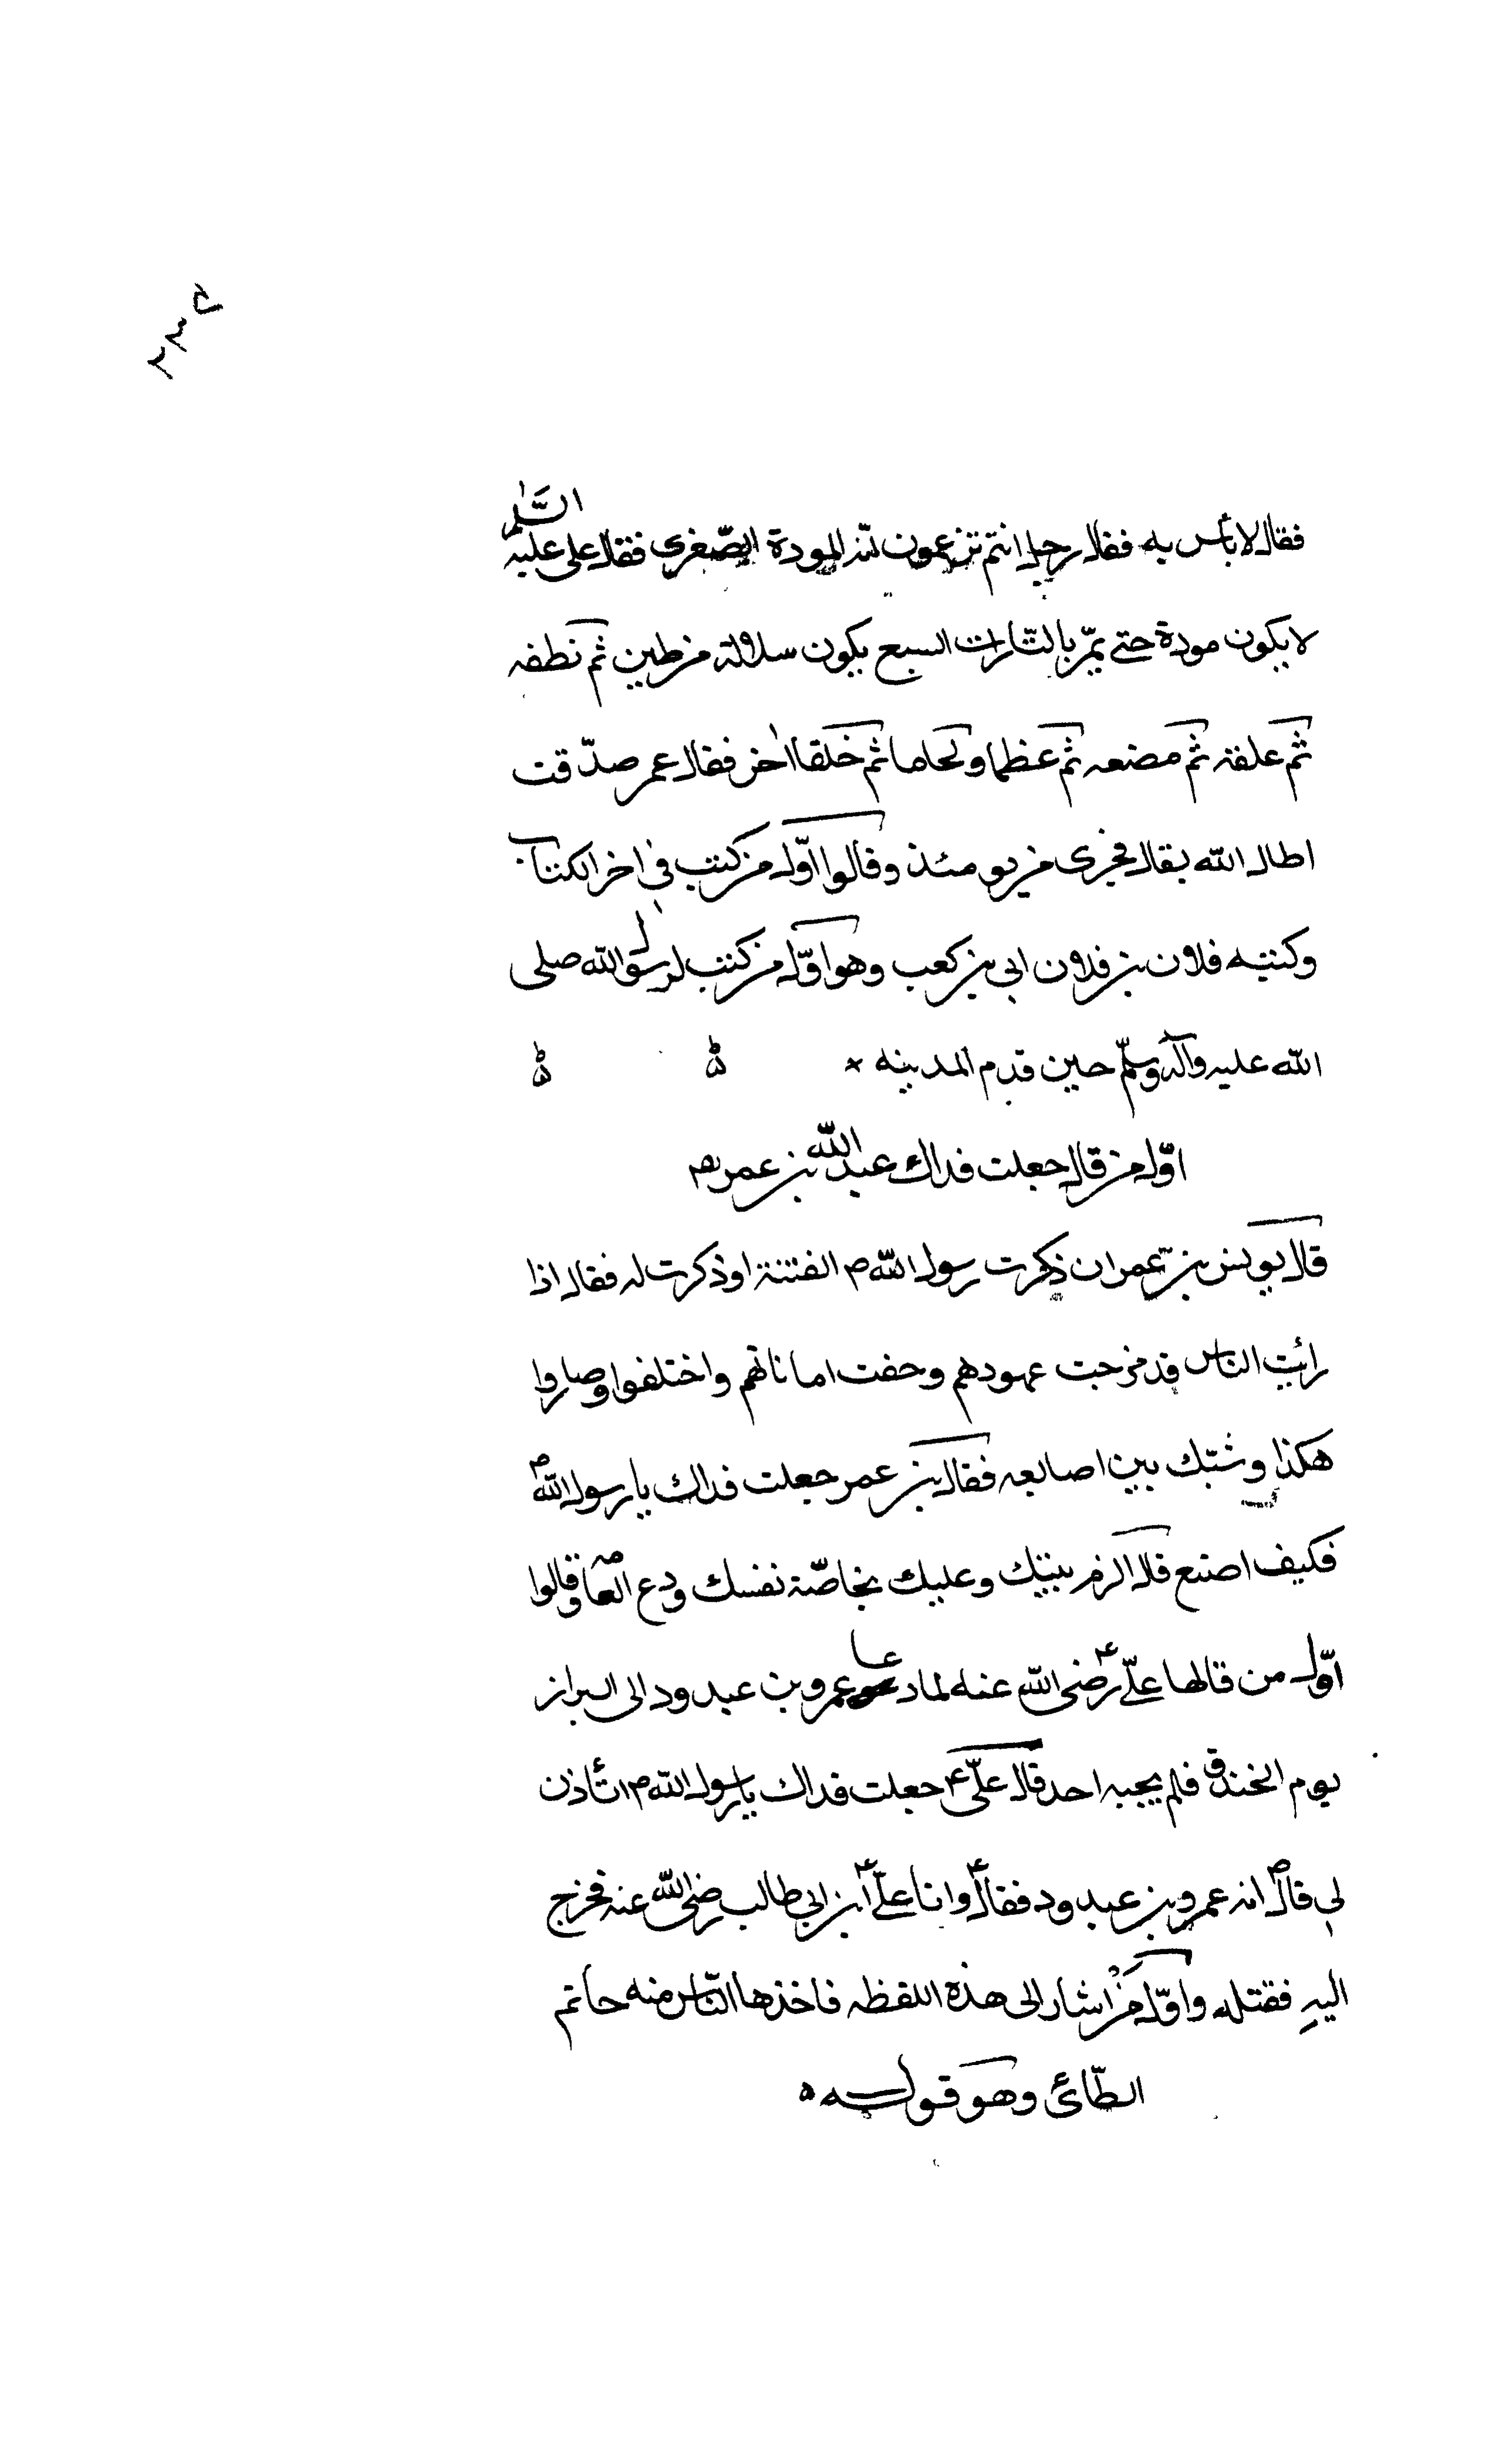 فقال لا بأس به فقال رجل انتم تزعمون انه المودة الصّغرى فقال على عليه السَّلم
لا يكون مودة حتى يمّر بالتّارات السبع يكون سلالة من طين ثم نطفه
ثم علقة ثم مضغه ثم عظما و لحاما ثم خلقا اخر فقال عمر صدّقت
اطال الله بقاك فجرى من يومئذ وقالوا اوّل من كتب في اخر الكتاب
وكتبه فلان بن فلان ابي بن كعب وهو اوّل من كتب لرسول الله صلى
الله عليه وآله وسلّم حين قدم المدينه
اوّل من قال جعلت فداك عبد الله بن عمر
قال يونس بن عمران ذكرت رسول الله ص الفتنة او ذكرت له فقال اذا
رأيت الناس قد مرجت عهودهم وخفت اماناتهم واختلفوا وصاروا
هكذا وشبّك بين اصابعه فقال بن عمر جعلت فداك يا رسول الله ص
فكيف اصنع قال الزم بيتك وعليك بخاصّة نفسك ودع العامه وقالوا
اوّل من قالها علىّ ع رضى الله عنه لما دعا عمرو بن عبدود الى البراز
يوم الخندق فلم يجبه احد قال علىّ ع جعلت فداك يا رسول الله ص اتأذن
لي قال ص انه عمرو بن عبدود فقال ع وانا علىّ ع ابن ابي طالب رضى الله عنه فخرج
اليه فقتله واوّل من اشار الى هذه اللفظه فاخذها النّاس منه حاتم
الطّائى وهو قوله